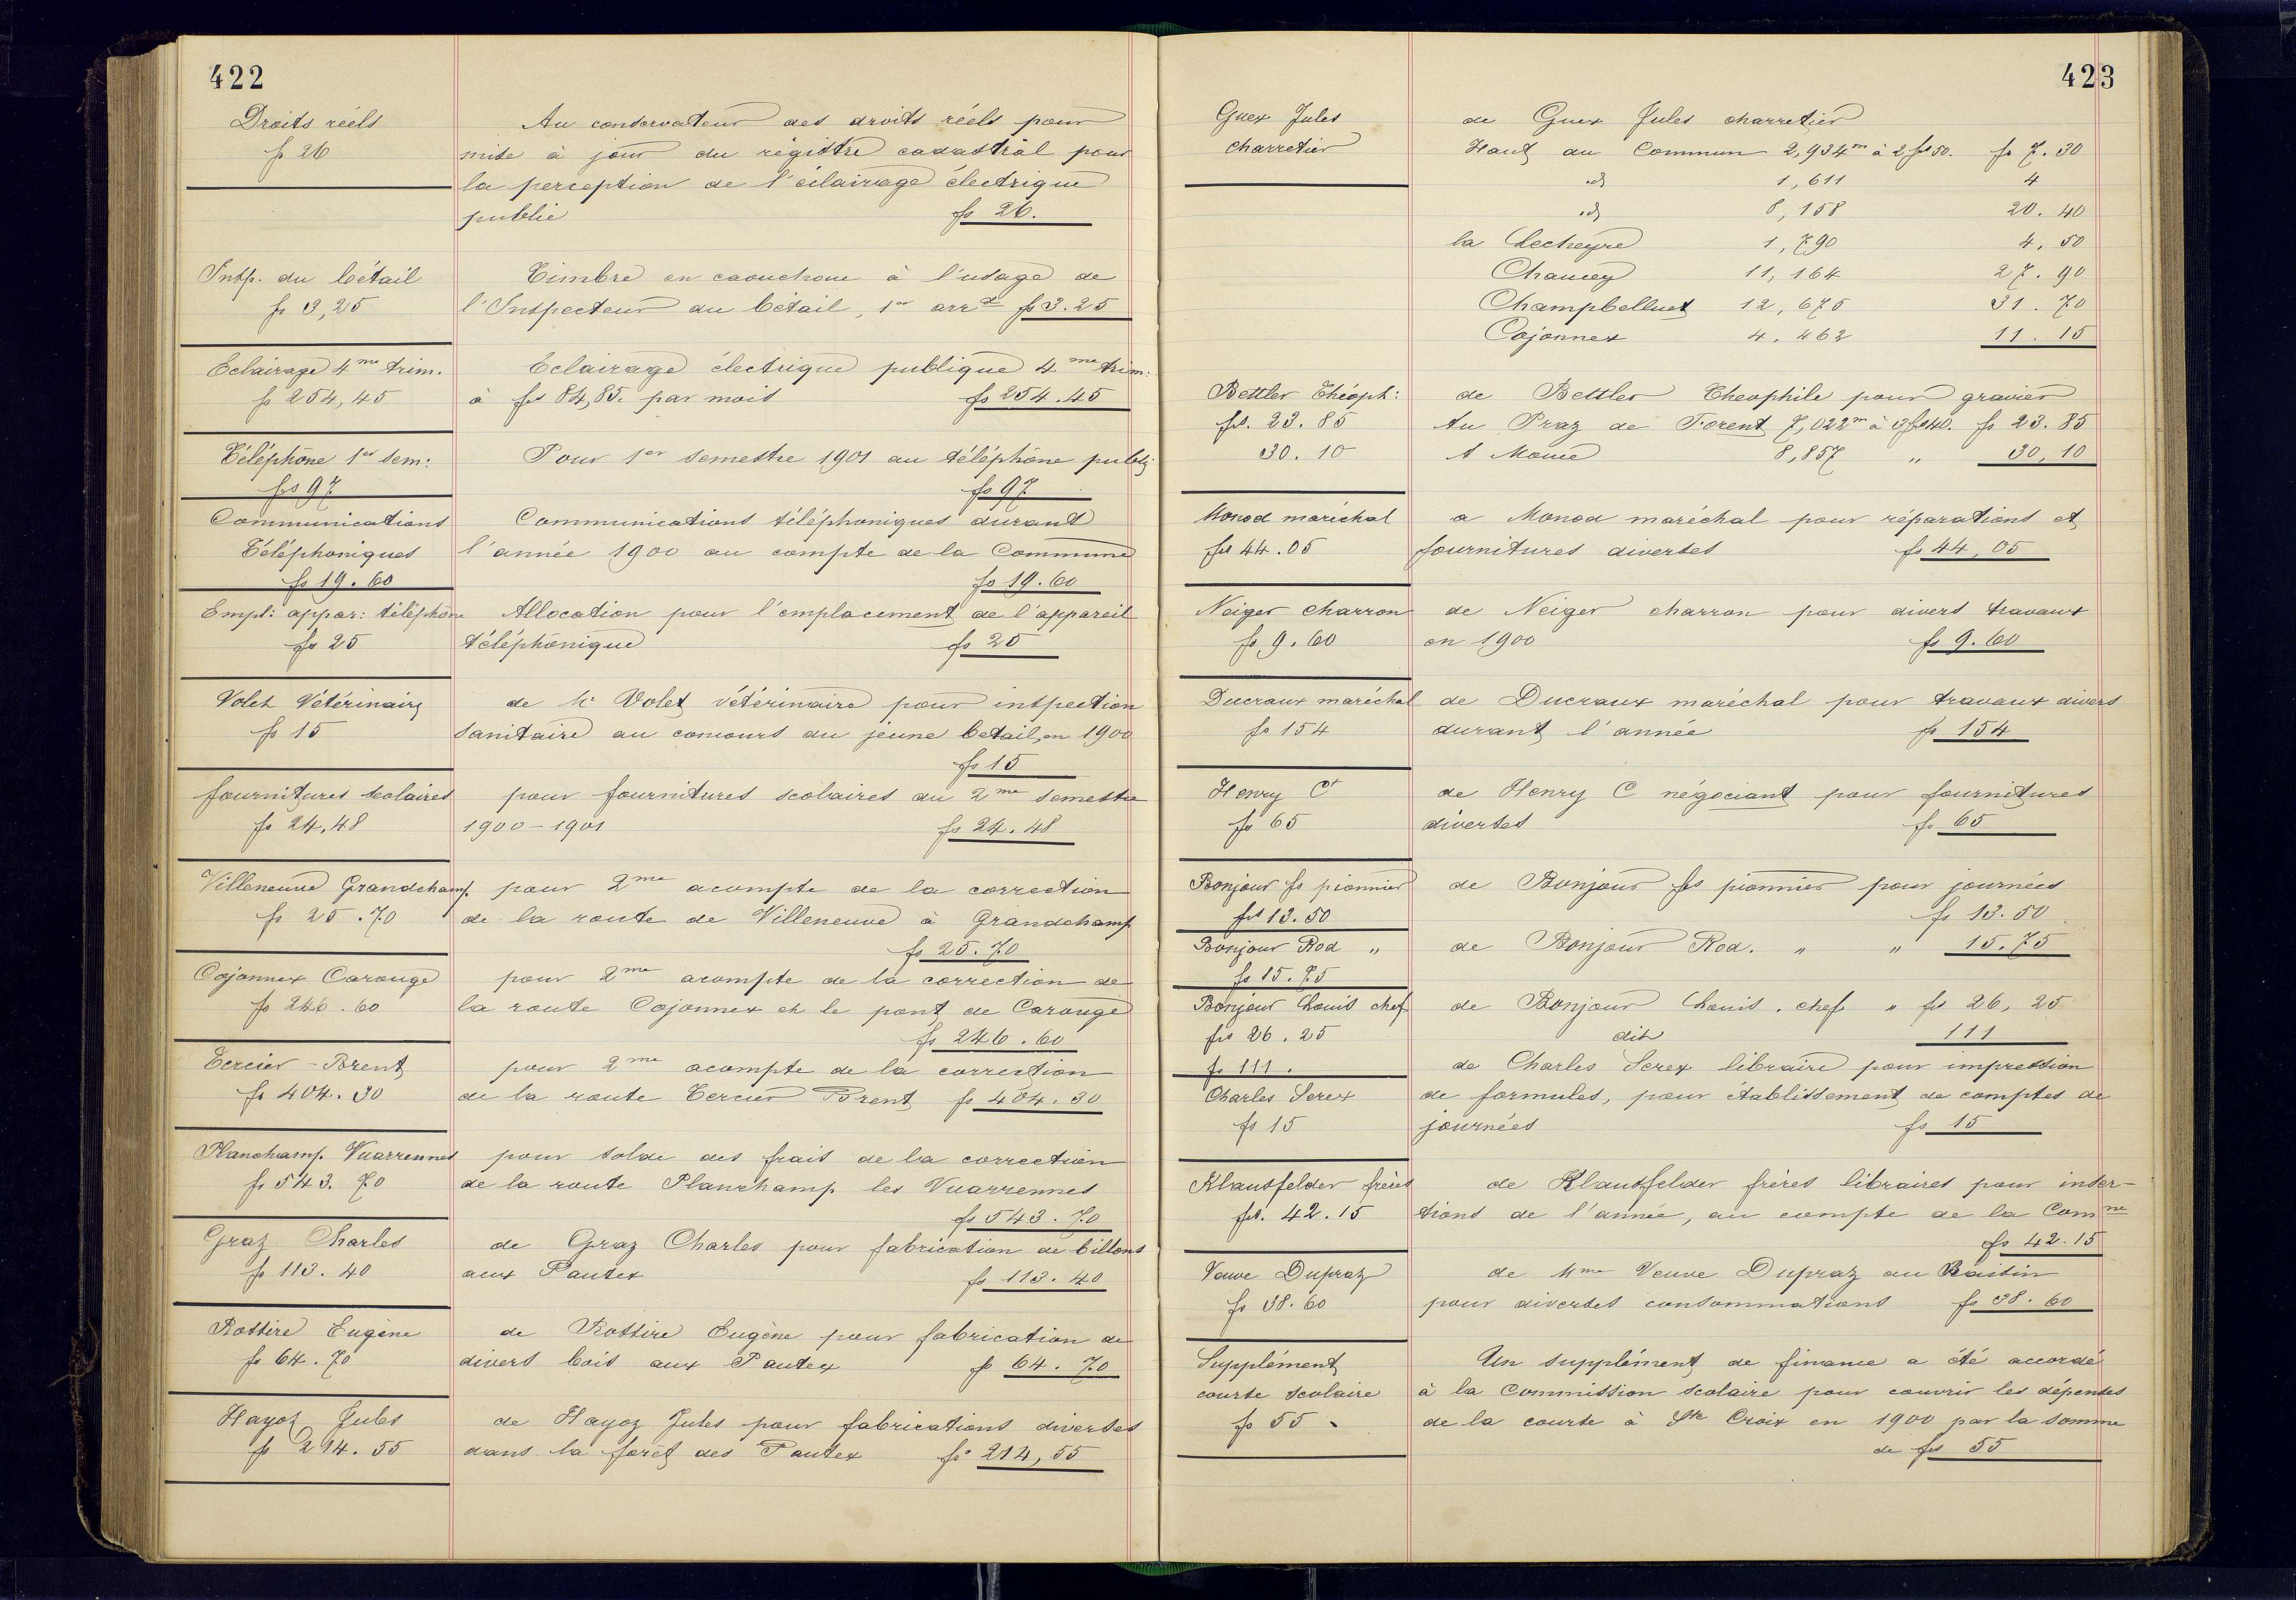 422
Droits réels
fs 26
Au conservateur des droits réels pour
mise à jour du régistre cadastral pour
la perception de l'éclairage électrique
public fs 26.
Insp. du bétail
fs 3,25
Timbre en caoutchouc à l'usage de
l'Inspecteur du bétail, 1er arrt fs 3.25
Eclairage 4me trim.
fs 254,45
Eclairage électrique publique 4me trim:
à fs 84,85. par mois fs 254.45
Téléphône 1er sem:
frs 97
Pour 1er semestre 1901 au téléphône publ:
fs 97
Communications
Téléphoniques
fs 19.60
Communications téléphoniques durant
l'année 1900 au compte de la Commune
fs 19.60
Empl: appar: téléphone
frs 25
Allocation pour l'emplacement de l'appareil
téléphonique fs 25
Volet Vétérinaire
fs 15
de Mr Volet vétérinaire pour inspection
sanitaire au concours du jeune betail, en 1900
fs 15
fournitures scolaires
fs 24,48
pour fournitures scolaires du 2me semestre
1900-1901 fs 24.48
Villeneuve Grandchamp
fs 25.70
pour 2me acompte de la correction
de la route de Villeneuve à Grandchamp
fs 25.70
Cojonnex Carouge
fs 246.60
pour 2me acompte de la correction de
la route Cojonnex et le pont de Carouge
fs 246.60
Tercier-Brent
fs 404.30
pour 2me acompte de la correction
de la route Tercier Brent fs 404.30
Planchamp Vuarrennes
fs 543.70
pour solde des frais de la correction
de la route Planchamp les Vuarrennes
fs 543.70
Graz Charles
fs 113.40
de Graz Charles pour fabrication de billons
aux Pautex fs 113.40
Rossire Eugène
fs 64.70
de Rossire Eugène pour fabrication de
divers bois aux Pautex fs 64.70
Hayoz Jules
fs 214.55
de Hayoz Jules pour fabrications diverses
dans la foret des Pautex fs 214,55
423
Guex Jules
charretier
de Guex Jules charretier
Haut du Commun 2,934m à 2 frs 50. fs 7.30
id 1,611 4
id 8,158 20.40
la Lecheyre 1,790 4,50
Chaucey 11,164 27.90
Champbelluet 12,675 31.70
Cojonnex 4,462 11.15
Bettler Théoph:
frs. 23.85
30.10
de Bettler Theophile pour gravier
Au Praz de Forent 7,022m à 3 frs 40. fs 23.85
A Mouce 8,857 " 30,10
Monod maréchal
frs 44.05
a Monod maréchal pour réparations et
fournitures diverses fs 44,05
Neiger charron
fs 9.60
de Neiger charron pour divers travaux
en 1900 fs 9.60
Ducraux maréchal
fs 154
de Ducraux maréchal pour travaux divers
durant l'année fs 154
Henry Ct
fs 65
de Henry C négociant pour fournitures
diverses fs 65
Bonjour fs pionnier
frs 13.50
de Bonjour frs pionnier pour journées
fs 13.50
Bonjour Rod "
fs 15.75
de Bonjour Rod. " " 15.75
Bonjour Louis chef
frs 26.25
fs 111.
de Bonjour Louis. chef " fs 26,25
dit 111
Charles Serex
fs 15
de Charles Serex libraire pour impression
de formules, pour établissement de comptes de
journées fs 15
Klausfelder frères
frs. 42.15
de Klausfelder frères libraires pour inser-
tions de l'année, au compte de la Comne
fs 42.15
Veuve Dupraz
fs 38.60
de Mme Veuve Dupraz au Raisin
pour diverses consommations fs 38.60
Supplément
course scolaire
fs 55
Un supplément de finance a été accordé
à la Commission scolaire pour couvrir les dépenses
de la course à Ste Croix en 1900 par la somme
de frs 55